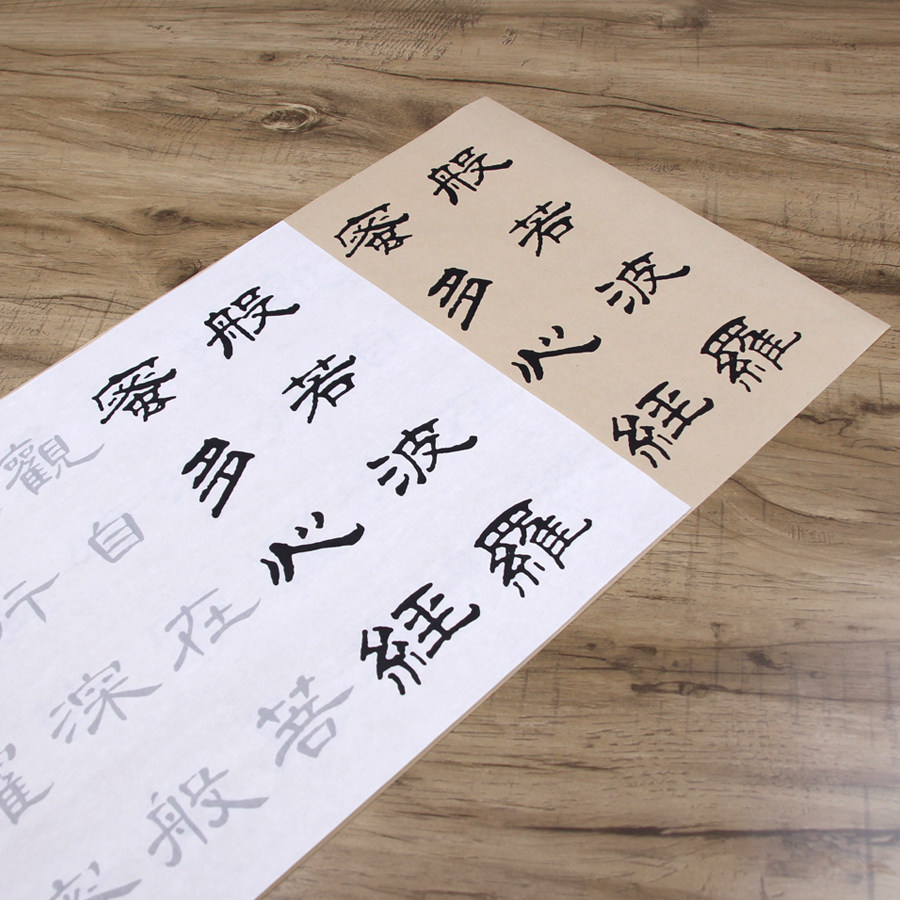 般若波羅
蜜多心經
般若波羅
蜜多心經
觀自在菩
行深般
羅蜜